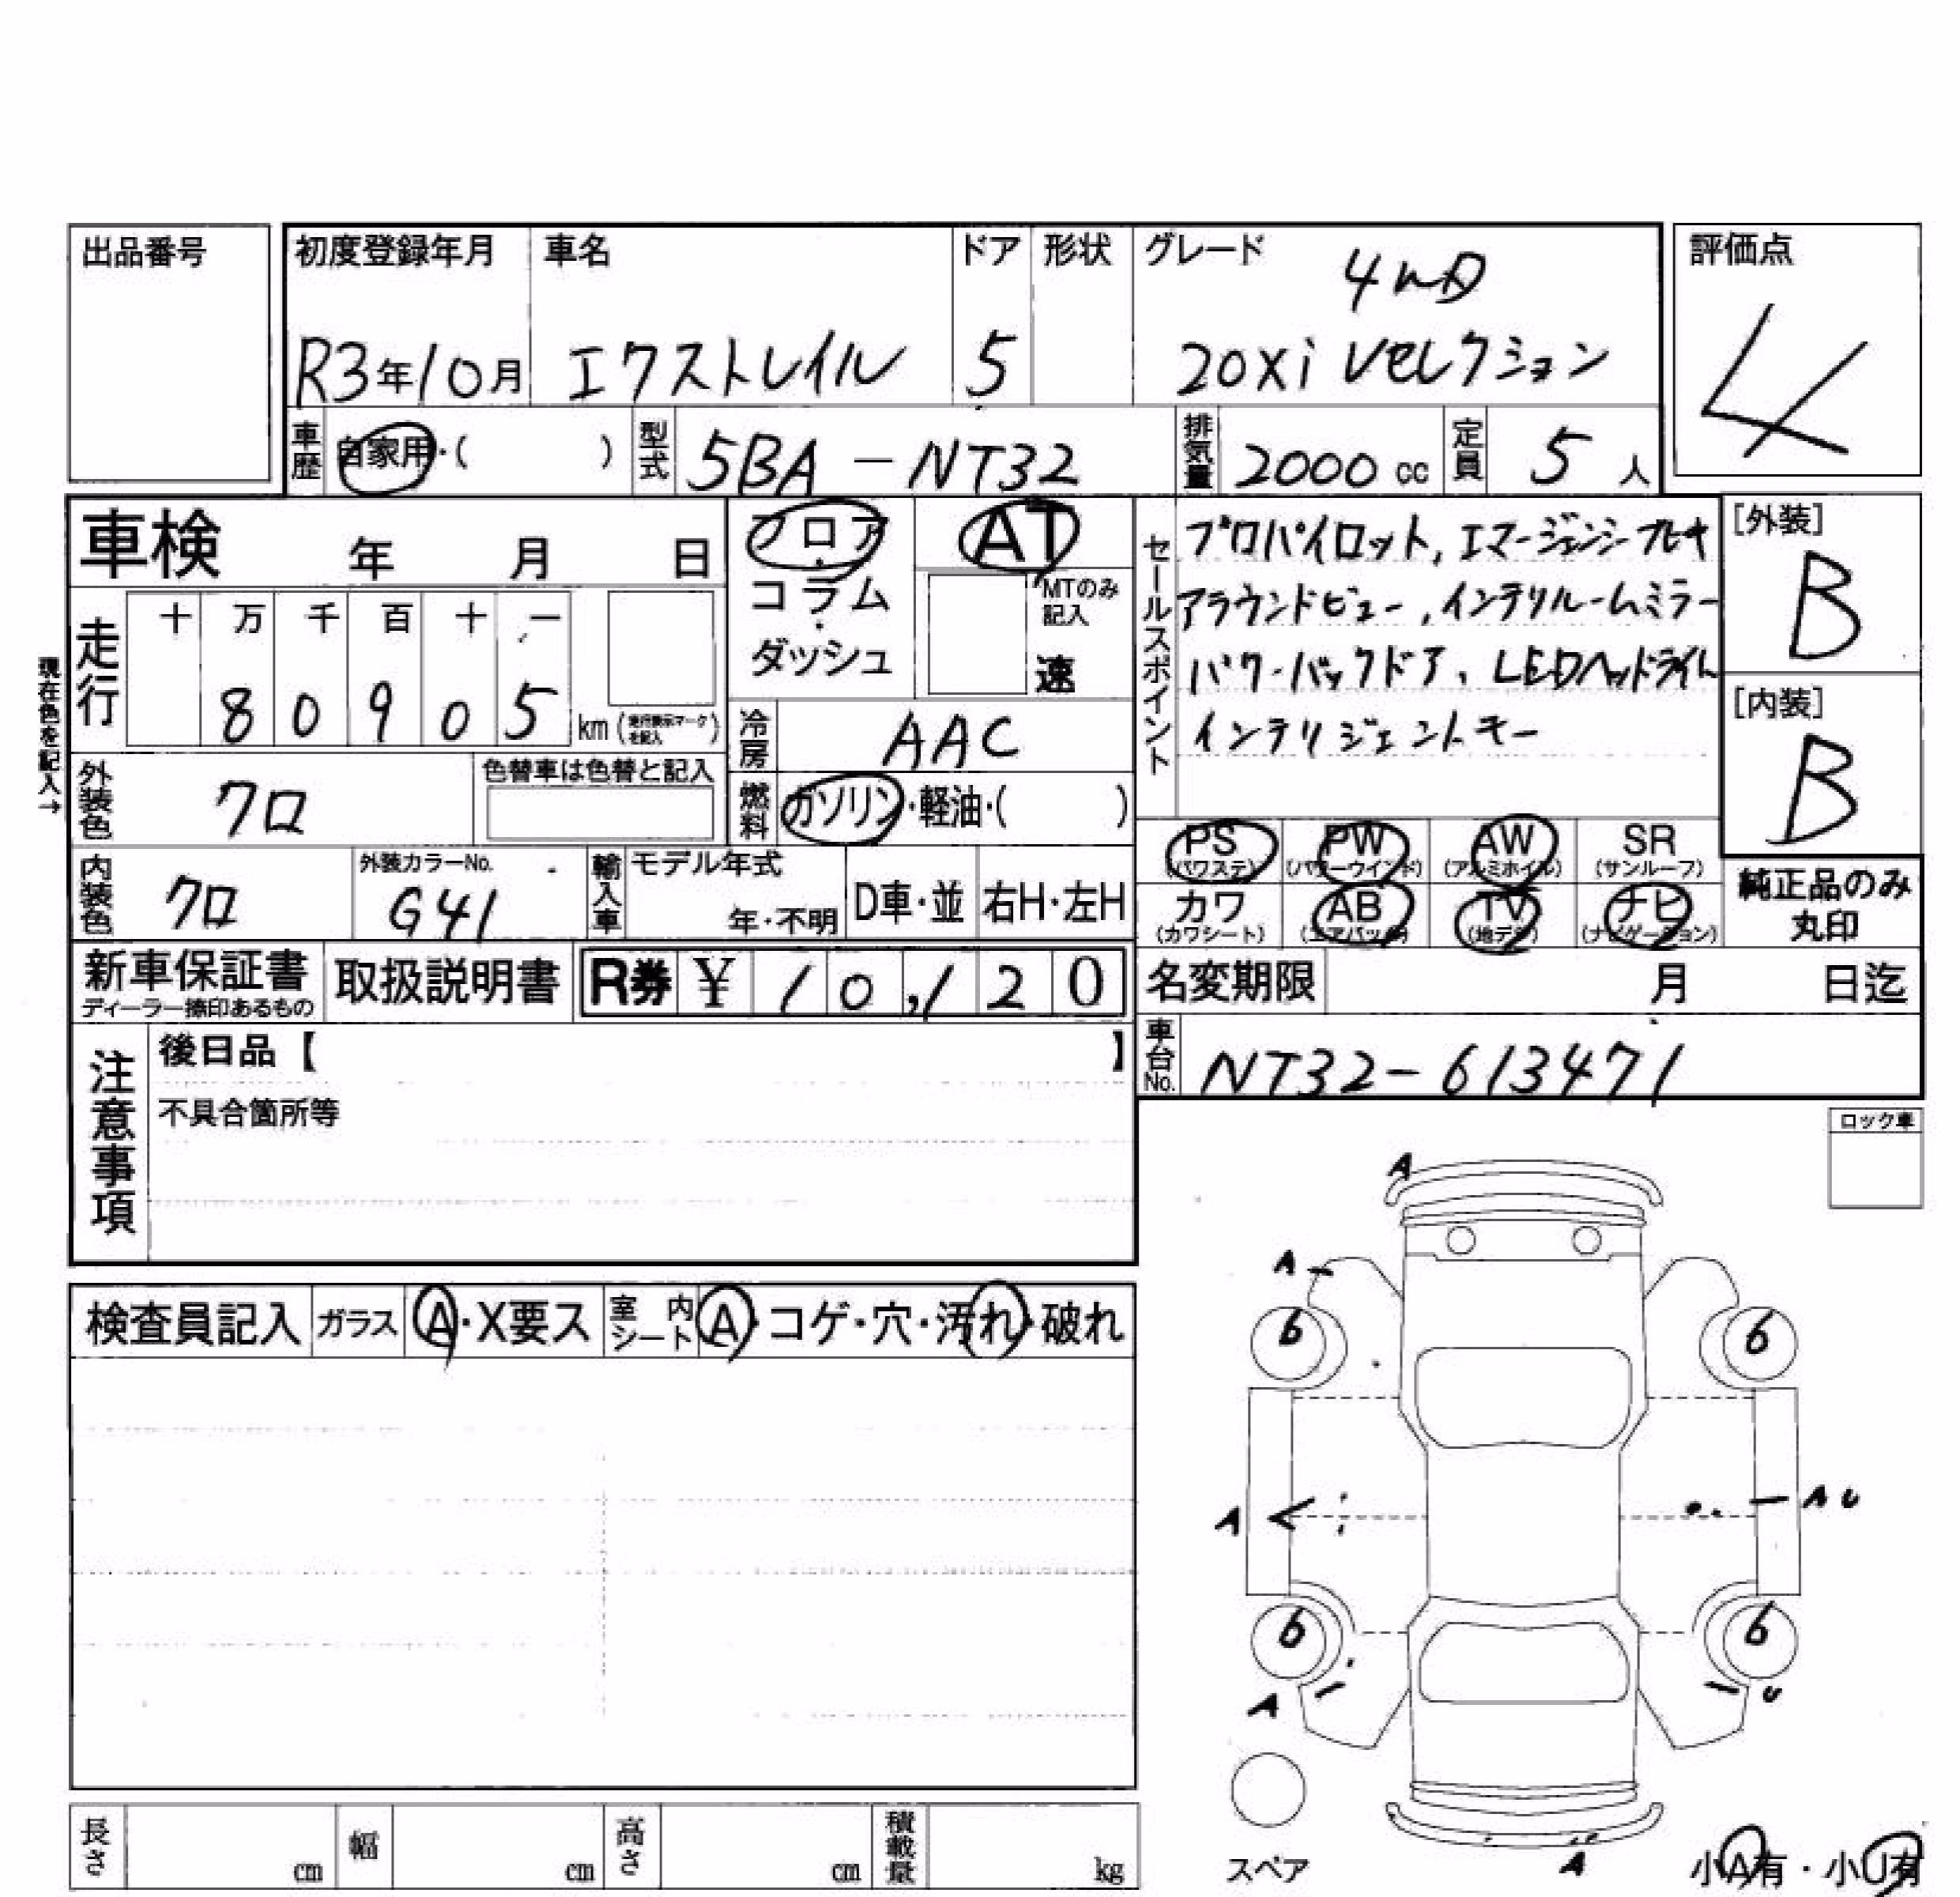 出品番号
初度登録年月 車名 ドア 形状 グレード 4WD 評価点
R3年10月 エクストレイル 5 20Xi Vセレクション 4
車歴 自家用・( ) 型式 5BA-NT32 排気量 2000cc 定員 5人
車検 年 月 日
フロア・コラム・ダッシュ
AT
MTのみ記入
速
セールスポイント
プロパイロット, エマージェンシーブレーキ
アラウンドビュー, インテリルームミラー
パワーバックドア、LEDヘッドライト
インテリジェントキー
[外装]
B
[内装]
B
現在色を記入→
走行 十 万 千 百 十 一
8 0 9 0 5 km
冷房 AAC
外装色 クロ 色替車は色替と記入
燃料 ガソリン・軽油・( )
PS (パワステ) PW (パワーウインド) AW (アルミホイル) SR (サンルーフ)
カワ (カワシート) AB (エアバッグ) TV (地デジ) ナビ (ナビゲーション)
純正品のみ
丸印
内装色 クロ 外装カラーNo. G41 輸入車 モデル年式 年・不明 D車・並 右H・左H
新車保証書 取扱説明書 R券 ¥ 10,120 名変期限 月 日迄
ディーラー捺印あるもの
車台No. NT32-613471
注意事項
後日品【 】
不具合箇所等
ロック車
検査員記入 ガラス A・X要ス 室内シート A・コゲ・穴・汚れ・破れ
A
A
6 6
A A U
6 6
A U
スペア
A
小A有・小U有
長さ cm 幅 cm 高さ cm 積載量 kg